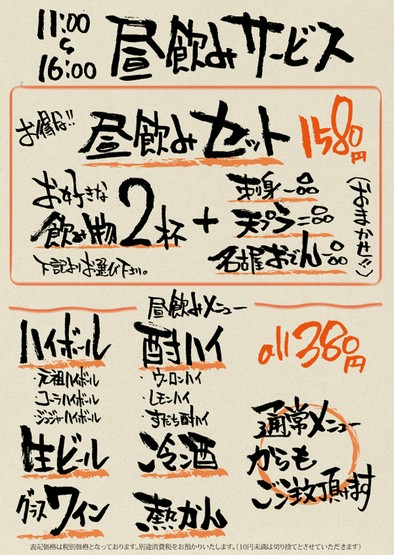 11:00
〜
16:00
昼飲みサービス
お得な!!
昼飲みセット
1580円
お好きな
飲み物2杯
下記よりお選び下さい。
+
刺身一品
天プラ二品
名古屋おでん一品
(おまかせ!!)
昼飲みメニュー
ハイボール
・元祖ハイボール
・コーラハイボール
・ジンジャーハイボール
酎ハイ
・ウーロンハイ
・レモンハイ
・すだち酎ハイ
all380円
生ビール
冷酒
グラスワイン
熱かん
通常メニュー
からも
ご注文頂けます
表記価格は税別価格となっております。別途消費税をお預かりいたします。(10円未満は切り捨てとさせていただきます)